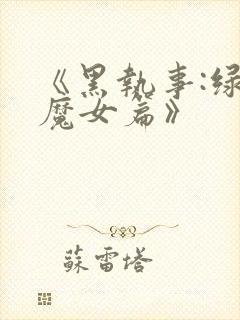 《黑執事:綠
魔女篇》
蘇雷塔